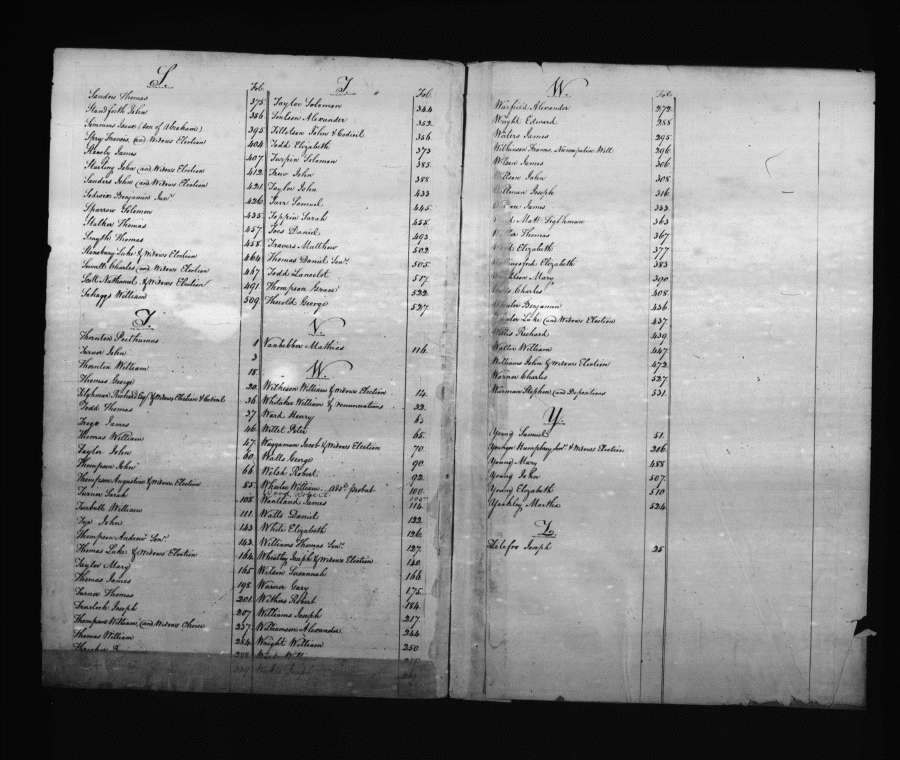 S.
Fol.
Sanders Thomas 375
Standforth John 386
Simmons Isaac (Son of Abraham) 395
Spry Francis, (and Widows Election 404
Stavely James 407
Starling John (and Widows Election 412
Sanders John (and Widows Election 421
Benjamin Junr. 426
Sparrow Solomon 435
Stalker Thomas 457
Smyth Thomas 458
Stansbury Luke & Widows Election 464
Sewall Charles (and Widows Election 467
Scott Nathaniel & Widows Election 491
Skaggs William 509
T.
Thornton Posthumus 1
Turner John 3
Thornton William 18
Thomas George 20
Tilghman Richard Esqr. & Widows Election & Codicil 36
Todd Thomas 37
James 46
Thomas William 47
Taylor John 60
Thompson John 66
Thompson Augustine & Widows Election 85
Turner Sarah 108
Turbutt William 111
Tye John 143
Thompson Andrew Senr. 143
Thomas Luke & Widows Election 164
Taylor Mary 165
Thomas James 198
Turner Thomas 201
Joseph 207
Thompson William (and Widows Choice 237
Thomas William 254
T.
Fol.
Taylor Solomon 344
Alexander 352
Tillotson John & Codicil 356
Todd Elizabeth 373
Turpin Solomon 385
John 388
Taylor John 433
Tarr Samuel 445
Tappin Sarah 458
Toes Daniel 493
Travers Matthew 502
Thomas Daniel Senr. 505
Todd Lancelot 517
Thompson Grace 522
Harold George 527
V.
Vanbebber Mathias 116
W.
Wilkeson William & Widows Election 14
Whitaker William & renunciations 32
Ward Henry 63
Willet Peter 65
Waggaman Jacob & Widows Election 70
Watts George 90
Welsh Robert 92
Wheeler William 100
Wood Robert
Wantland James 114
Watts Daniel 122
White Elizabeth 126
Williams Thomas Senr. 127
Wheatley Joseph & Widows Election 140
Wilson Susannah 166
Warner Gary 175
Withers Robert 184
Williams Joseph 217
Williamson Alexander 244
Wright William 250
W.
Fol.
Warfield Alexander 272
Wright Edward 288
Waters James 295
Wilkinson Francis, Nuncupative Will 296
Wilson James 306
Willson John 308
Joseph 316
James 333
Lightman 363
Thomas 367
Elizabeth 377
Elizabeth 383
Mary 390
Charles 408
Benjamin 436
Luke (and Widows Election 437
Willis Richard 439
Walter William 447
Williams John & Widows Election 472
Warner Charles 527
Warman Stephen (and Depositions 531
Y.
Young Samuel 51
Younger Humphrey Senr. & Widows Election 286
Young Mary 488
Young John 507
Young Elizabeth 510
Yeakley Martha 524
Z.
Zelefro Joseph 25